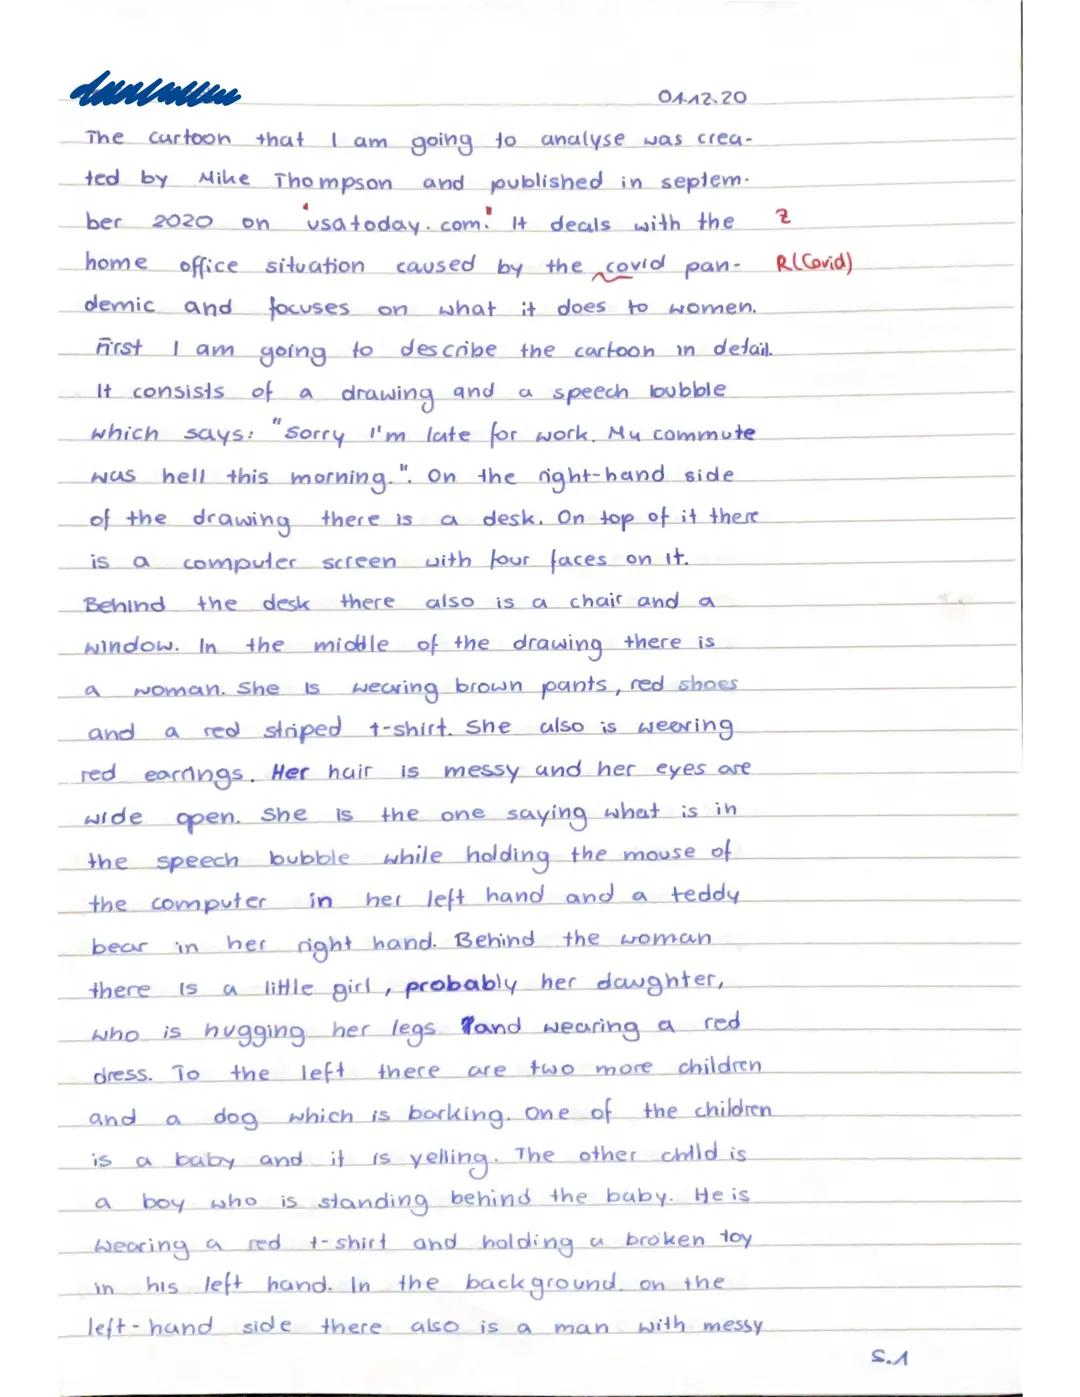 01.12.20
The cartoon that I am going to analyse was crea-
ted by Mike Thompson and published in septem-
ber 2020 on "usatoday.com." It deals with the Z
home office situation caused by the covid pan- R(Covid)
demic and focuses on what it does to women.
First I am going to describe the cartoon in detail.
It consists of a drawing and a speech bubble
which says: "Sorry I'm late for work. My commute
was hell this morning.". On the right-hand side
of the drawing there is a desk. On top of it there
is a computer screen with four faces on it.
Behind the desk there also is a chair and a
window. In the middle of the drawing there is
a woman. She is wearing brown pants, red shoes
and a red striped t-shirt. She also is wearing
red earrings. Her hair is messy and her eyes are
wide open. She is the one saying what is in
the speech bubble while holding the mouse of
the computer in her left hand and a teddy
bear in her right hand. Behind the woman
there is a little girl, probably her daughter,
who is hugging her legs and wearing a red
dress. To the left there are two more children
and a dog which is barking. One of the children
is a baby and it is yelling. The other child is
a boy who is standing behind the baby. He is
wearing a red t-shirt and holding a broken toy
in his left hand. In the background on the
left-hand side there also is a man with messy
S.1